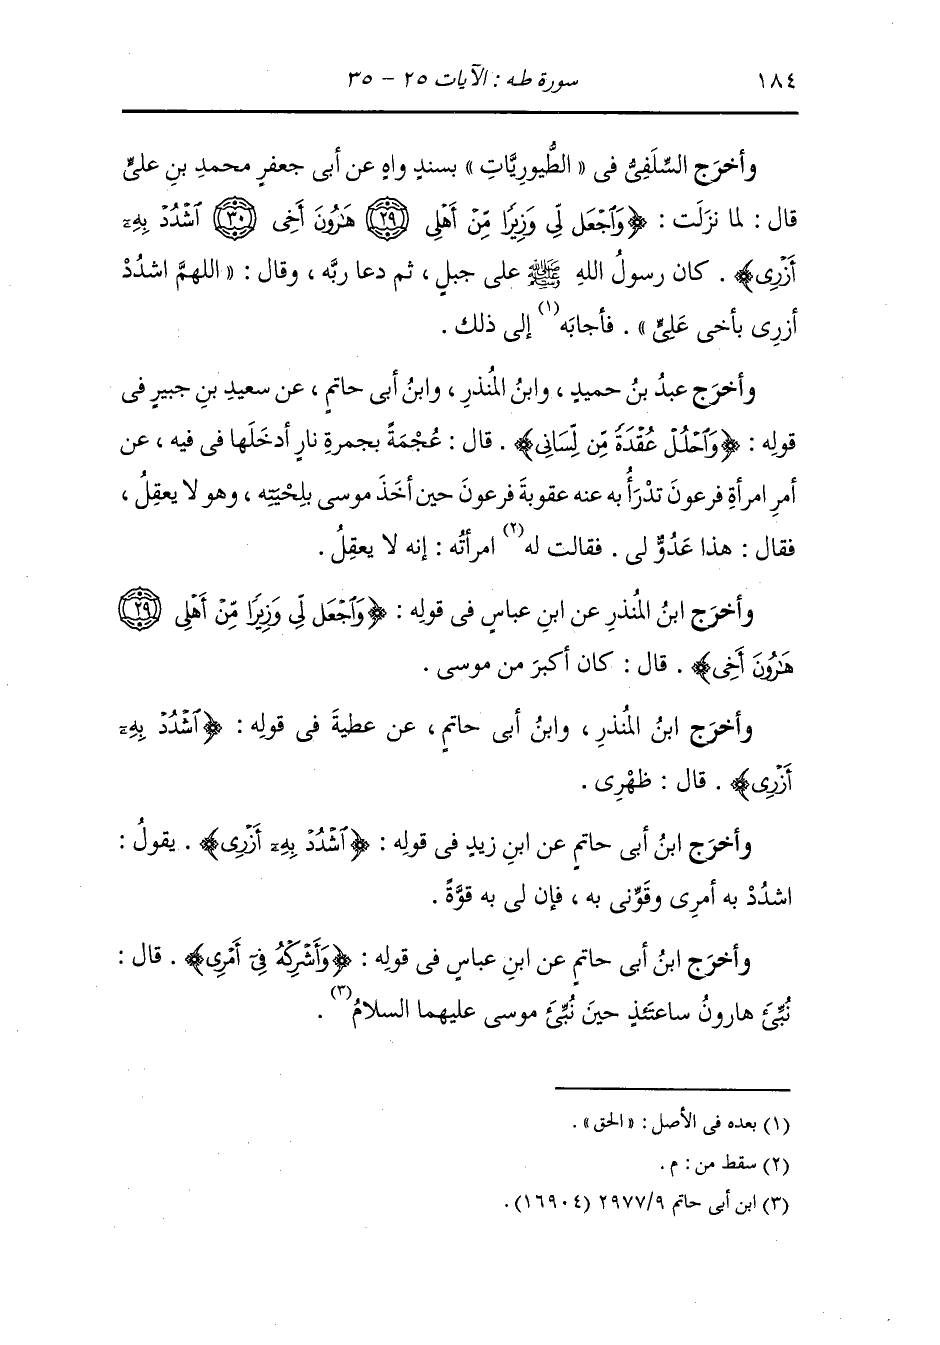 ١٨٤ سورة طه : الآيات ٢٥ - ٣٥
وأخرَج السِّلَفِىُّ فى « الطُّيورِيَّاتِ » بسندٍ واهٍ عن أبى جعفرٍ محمدِ بنِ علىٍّ
قال : لما نزَلَت : ﴿وَٱجۡعَل لِّي وَزِيرٗا مِّنۡ أَهۡلِي ٢٩ هَٰرُونَ أَخِي ٣٠ ٱشۡدُدۡ بِهِۦٓ
أَزۡرِي﴾ . كان رسولُ اللهِ ﷺ على جبلٍ ، ثم دعا ربَّه ، وقال : « اللهمَّ اشدُدْ
أزرِى بأخى عَلِىٍّ » . فأجابَه(١) إلى ذلك .
وأخرَج عبدُ بنُ حميدٍ ، وابنُ المُنذرِ ، وابنُ أبى حاتمٍ ، عن سعيدِ بنِ جبيرٍ فى
قولِه : ﴿وَٱحۡلُلۡ عُقۡدَةٗ مِّن لِّسَانِي﴾ . قال : عُجْمَةً بجمرةِ نارٍ أدخَلَها فى فيه ، عن
أمرِ امرأةِ فرعونَ تدْرَأُ به عنه عقوبةَ فرعونَ حين أخَذَ موسى بلِحْيَتِه ، وهو لا يعقِلُ ،
فقال : هذا عَدُوٌّ لى . فقالت له(٢) امرأتُه : إنه لا يعقِلُ .
وأخرَج ابنُ المُنذرِ عن ابنِ عباسٍ فى قولِه : ﴿وَٱجۡعَل لِّي وَزِيرٗا مِّنۡ أَهۡلِي ٢٩
هَٰرُونَ أَخِي﴾ . قال : كان أكبرَ من موسى .
وأخرَج ابنُ المُنذرِ ، وابنُ أبى حاتمٍ ، عن عطيةَ فى قولِه : ﴿ٱشۡدُدۡ بِهِۦٓ
أَزۡرِي﴾ . قال : ظهْرِى .
وأخرَج ابنُ أبى حاتمٍ عن ابنِ زيدٍ فى قولِه : ﴿ٱشۡدُدۡ بِهِۦٓ أَزۡرِي﴾ . يقولُ :
اشدُدْ به أمرِى وقَوِّنى به ، فإن لى به قوَّةً .
وأخرَج ابنُ أبى حاتمٍ عن ابنِ عباسٍ فى قولِه : ﴿وَأَشۡرِكۡهُ فِيٓ أَمۡرِي﴾ . قال :
نُبِّئَ هارونُ ساعتَئذٍ حينَ نُبِّئَ موسى عليهما السلامُ(٣) .
(١) بعده فى الأصل : « الحق » .
(٢) سقط من : م .
(٣) ابن أبى حاتم ٢٩٧٧/٩ (١٦٩٠٤) .